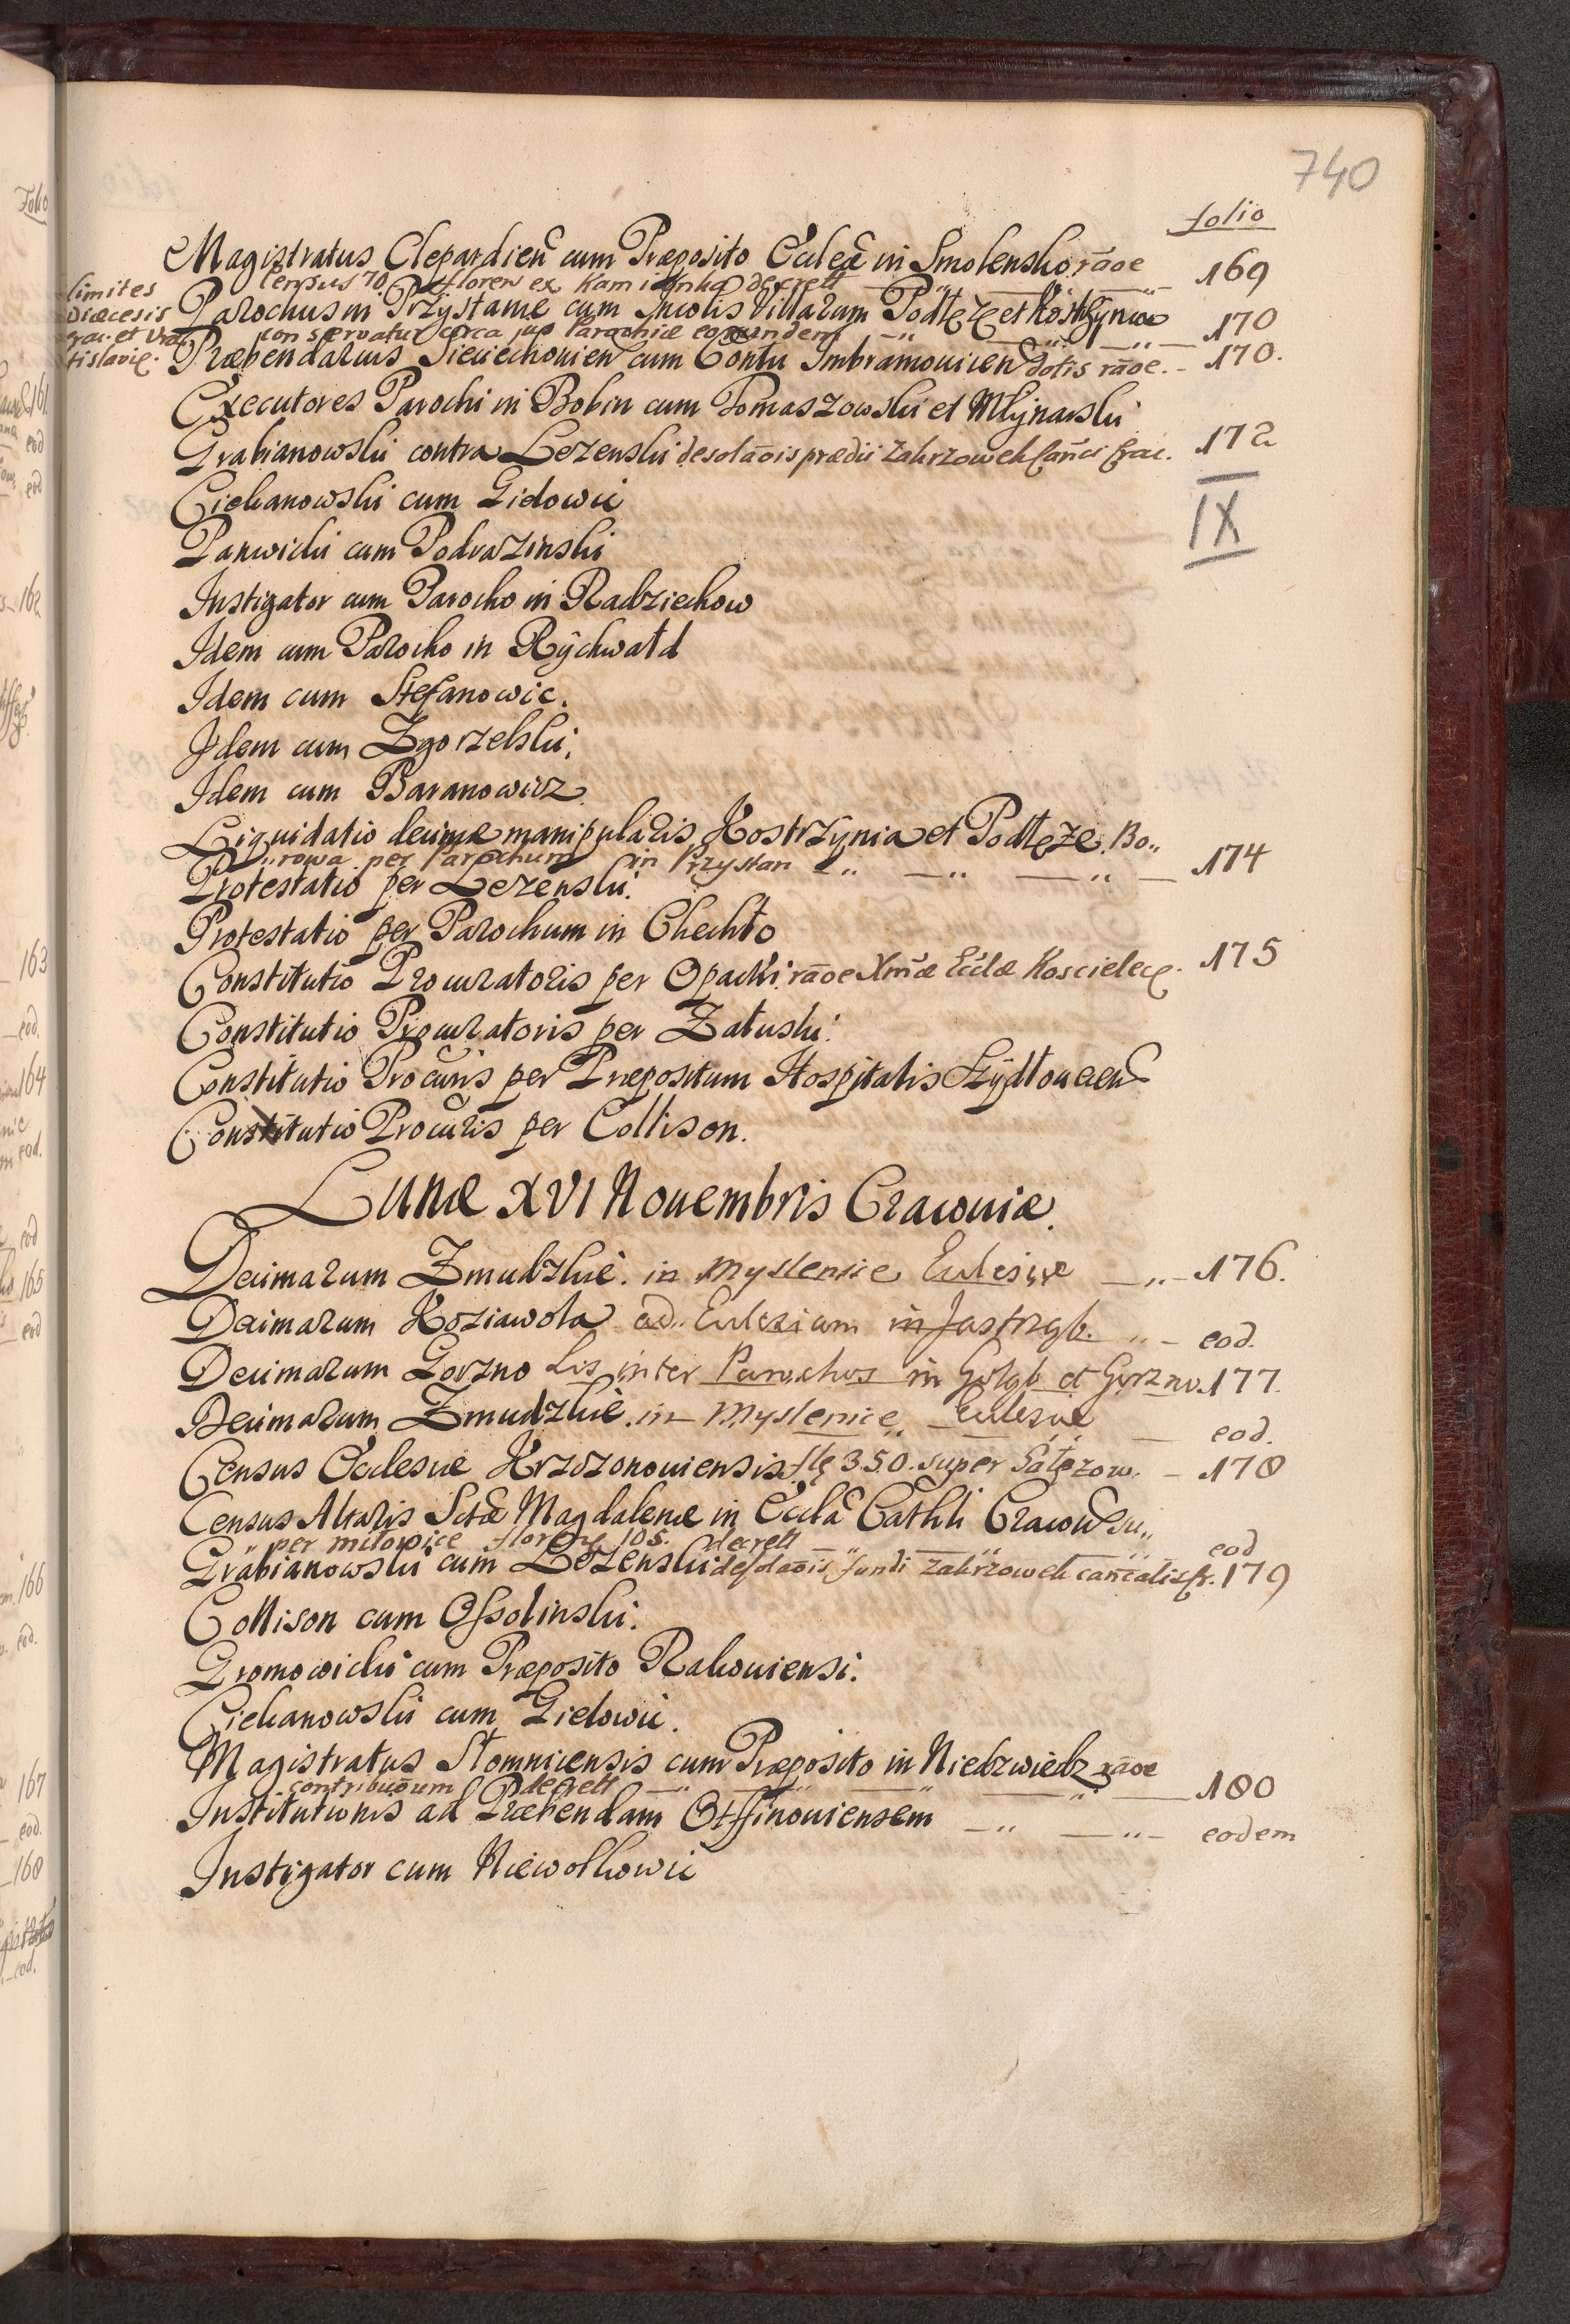 740
folio
Magistratus Clepardień cum Præposito Ecclæ in Smolensko, rãoe 169
Census 70 floren ex Kamionka decrett
limites
Diæcesis
Crac. et Vra
tislavię.
Parochus in Przystanie cum Incolis Villarum Podłęze et Kostrzynia 170
conservatur circa jus Parochiæ eorundem
Præbendarius Sieciechouień cum Contu Imbramouicen dotis rãoe. - 170.
Executores Parochi in Bobin cum Tomaszowski et Młynarski
Grabianowski contra Lezenski desolãois prædii Zakrzowek Canci Crac. 172
IX
Ciekanowski cum Gidowic
Panwicki cum Podrazinski
Instigator cum Parocho in Radziechow
Idem cum Parocho in Rychwałd
Idem cum Stefanowic.
Idem cum Zgorzelski.
Idem cum Baranowicz
Liquidatio decimæ manipularis Kostrzynia et Podłęze. Bo„
„rowa per Parochum in Przystan 174
Protestatio per Lezenski.
Protestatio per Parochum in Chechło
Constitutio Procuratoris per Opacki. rãoe Xmæ Ecclæ Koscielecę. 175
Constitutio Procuratoris per Załuski.
Constitutio Procuris per Præpositum Hospitalis Szydłouecen
Constitutio Procuris per Collison.
Lunæ XVI Nouembris Cracouiæ.
Decimarum Zmudzkie. in Myslenice Ecclesiæ 176.
Decimarum Koziawola ad Ecclesiam in Jastrząb. eod.
Decimarum Gorzno Lis inter Parochos in Gołąb et Gorzno. 177.
Decimarum Zmudzkie. in Myslenice Eclesiæ eod.
Census Ecclesiæ Krzczonouiensis. flę 350. super Sałęzow. - 178
Census Altaris Sctæ Magdalenæ in Eccla Cathli Cracou su„
„per miłowice florenę 105. decrett eod
Grabianowski cum Lezenski desolaõis fundi Zakrzowek cancalis cr. 179
Collison cum Ossolinski.
Gromowicki cum Præposito Rakouiensi.
Ciekanowski cum Giedowic.
Magistratus Słomnicensis cum Præposito in Niedzwiedz rãoe
contribuõum decrett 180
Institutionis ad Præbendam Otffinouiensem eodem
Instigator cum Niewolkowic